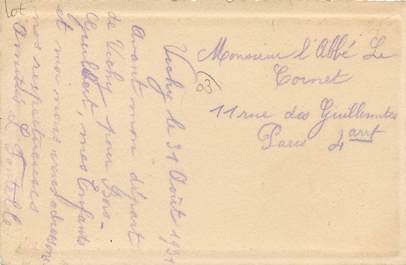 lot
Vichy le 31 Août 1931
Avant mon départ
de Vichy pour Bois-
Guilbert, mes Enfants
et moi nous vous adressons
nos respectueuses
amitiés
63
Monsieur l'Abbé Le
Cornet
11 rue des Guillemites
Paris 4 arrt